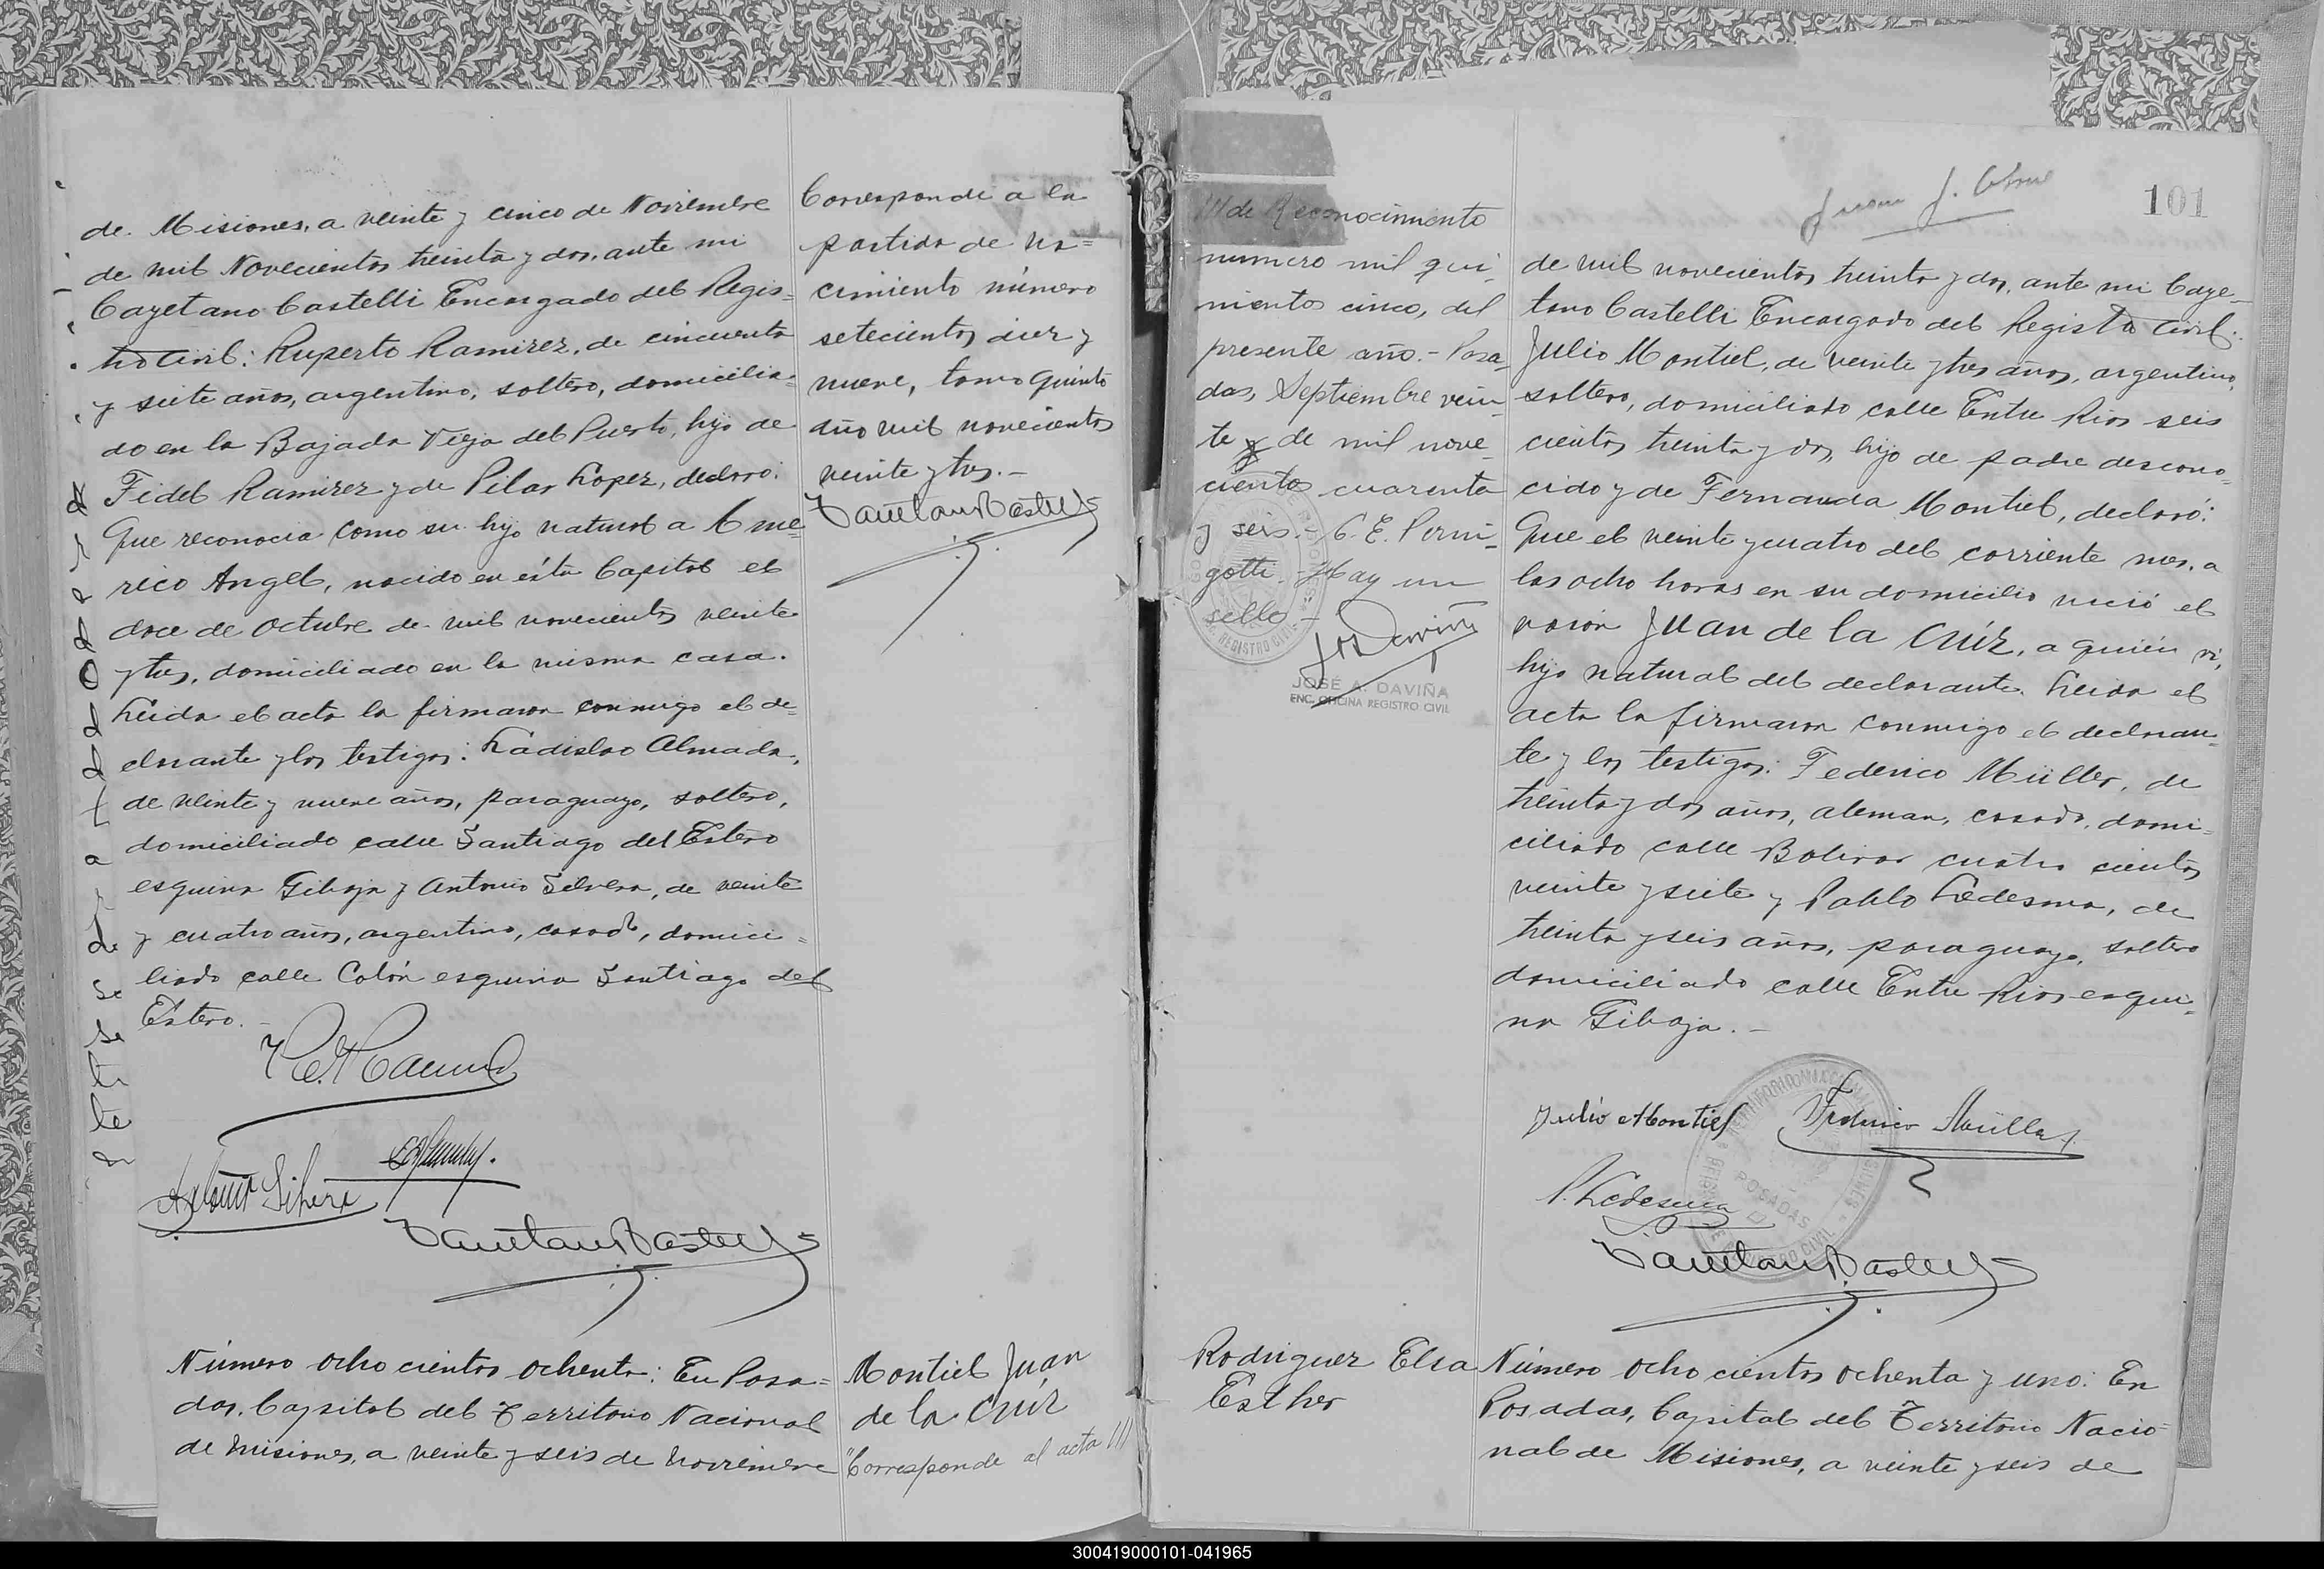 de Misiones, a veinte y cinco de Noviembre
de mil Novecientos treinta y dos, ante mi
Cayetano Castelli Encargado del Regis=
tro Civil: Ruperto Ramirez, de cincuenta
y siete años, argentino, soltero, domicilia=
do en la Bajada Vieja del Puerto, hijo de
Fidel Ramirez y de Pilar Lopez, declaró:
Que reconocia como su hijo natural a Ame=
rico Angel, nacido en ésta Capital el
doce de Octubre de mil novecientos veinte
y tres, domiciliado en la misma casa.
Leida el acta la firmaron conmigo el de=
clarante y los testigos: Ladislao Almada,
de veinte y nueve años, paraguayo, soltero,
domiciliado calle Santiago del Estero
esquina Gibaja y Antonio Silvera, de veinte
y cuatro años, argentino, casado, domici=
liado calle Colón esquina Santiago del
Estero.-
Corresponde a la
partida de na=
cimiento número
setecientos diez y
nueve, tomo quinto
año mil novecientos
veinte y tres.-
Número ochocientos ochenta: En Posa=
das, Capital del Territorio Nacional
de Misiones, a veinte y seis de Noviembre
Montiel Juan
de la Crúz
"Corresponde al acta
de Reconocimiento
número mil qui-
nientos cinco, del
presente año.- Posa-
das, Septiembre vein-
te y de mil nove-
cientos cuarenta
y seis.- C. E. Perni-
gotti.- Hay un
sello.-
JOSÉ A. DAVIÑA
ENC. OFICINA REGISTRO CIVIL
101
de mil novecientos treinta y dos, ante mi Caye-
tano Castelli Encargado del Registro Civil:
Julio Montiel, de veinte y tres años, argentino,
soltero, domiciliado calle Entre Rios seis
cientos treinta y dos, hijo de padre descono=
cido y de Fernanda Montiel, declaró:
Que el veinte y cuatro del corriente mes, a
las ocho horas en su domicilio nació el
varón Juan de la Crúz, a quién vi,
hijo natural del declarante. Leida el
acta la firmaron conmigo el declaran=
te y los testigos: Federico Müller, de
treinta y dos años, aleman, casado, domi=
ciliado calle Bolivar cuatro cientos
veinte y siete y Pablo Ledesma, de
treinta y seis años, paraguayo, soltero
domiciliado calle Entre Rios esqui=
na Gibaja.-
Julio Montiel Federico Müller
P. Ledesma
POSADAS
Rodriguez Elsa
Esther
Número ochocientos ochenta y uno: En
Posadas, Capital del Territorio Nacio=
nal de Misiones, a veinte y seis de
300419000101-041965